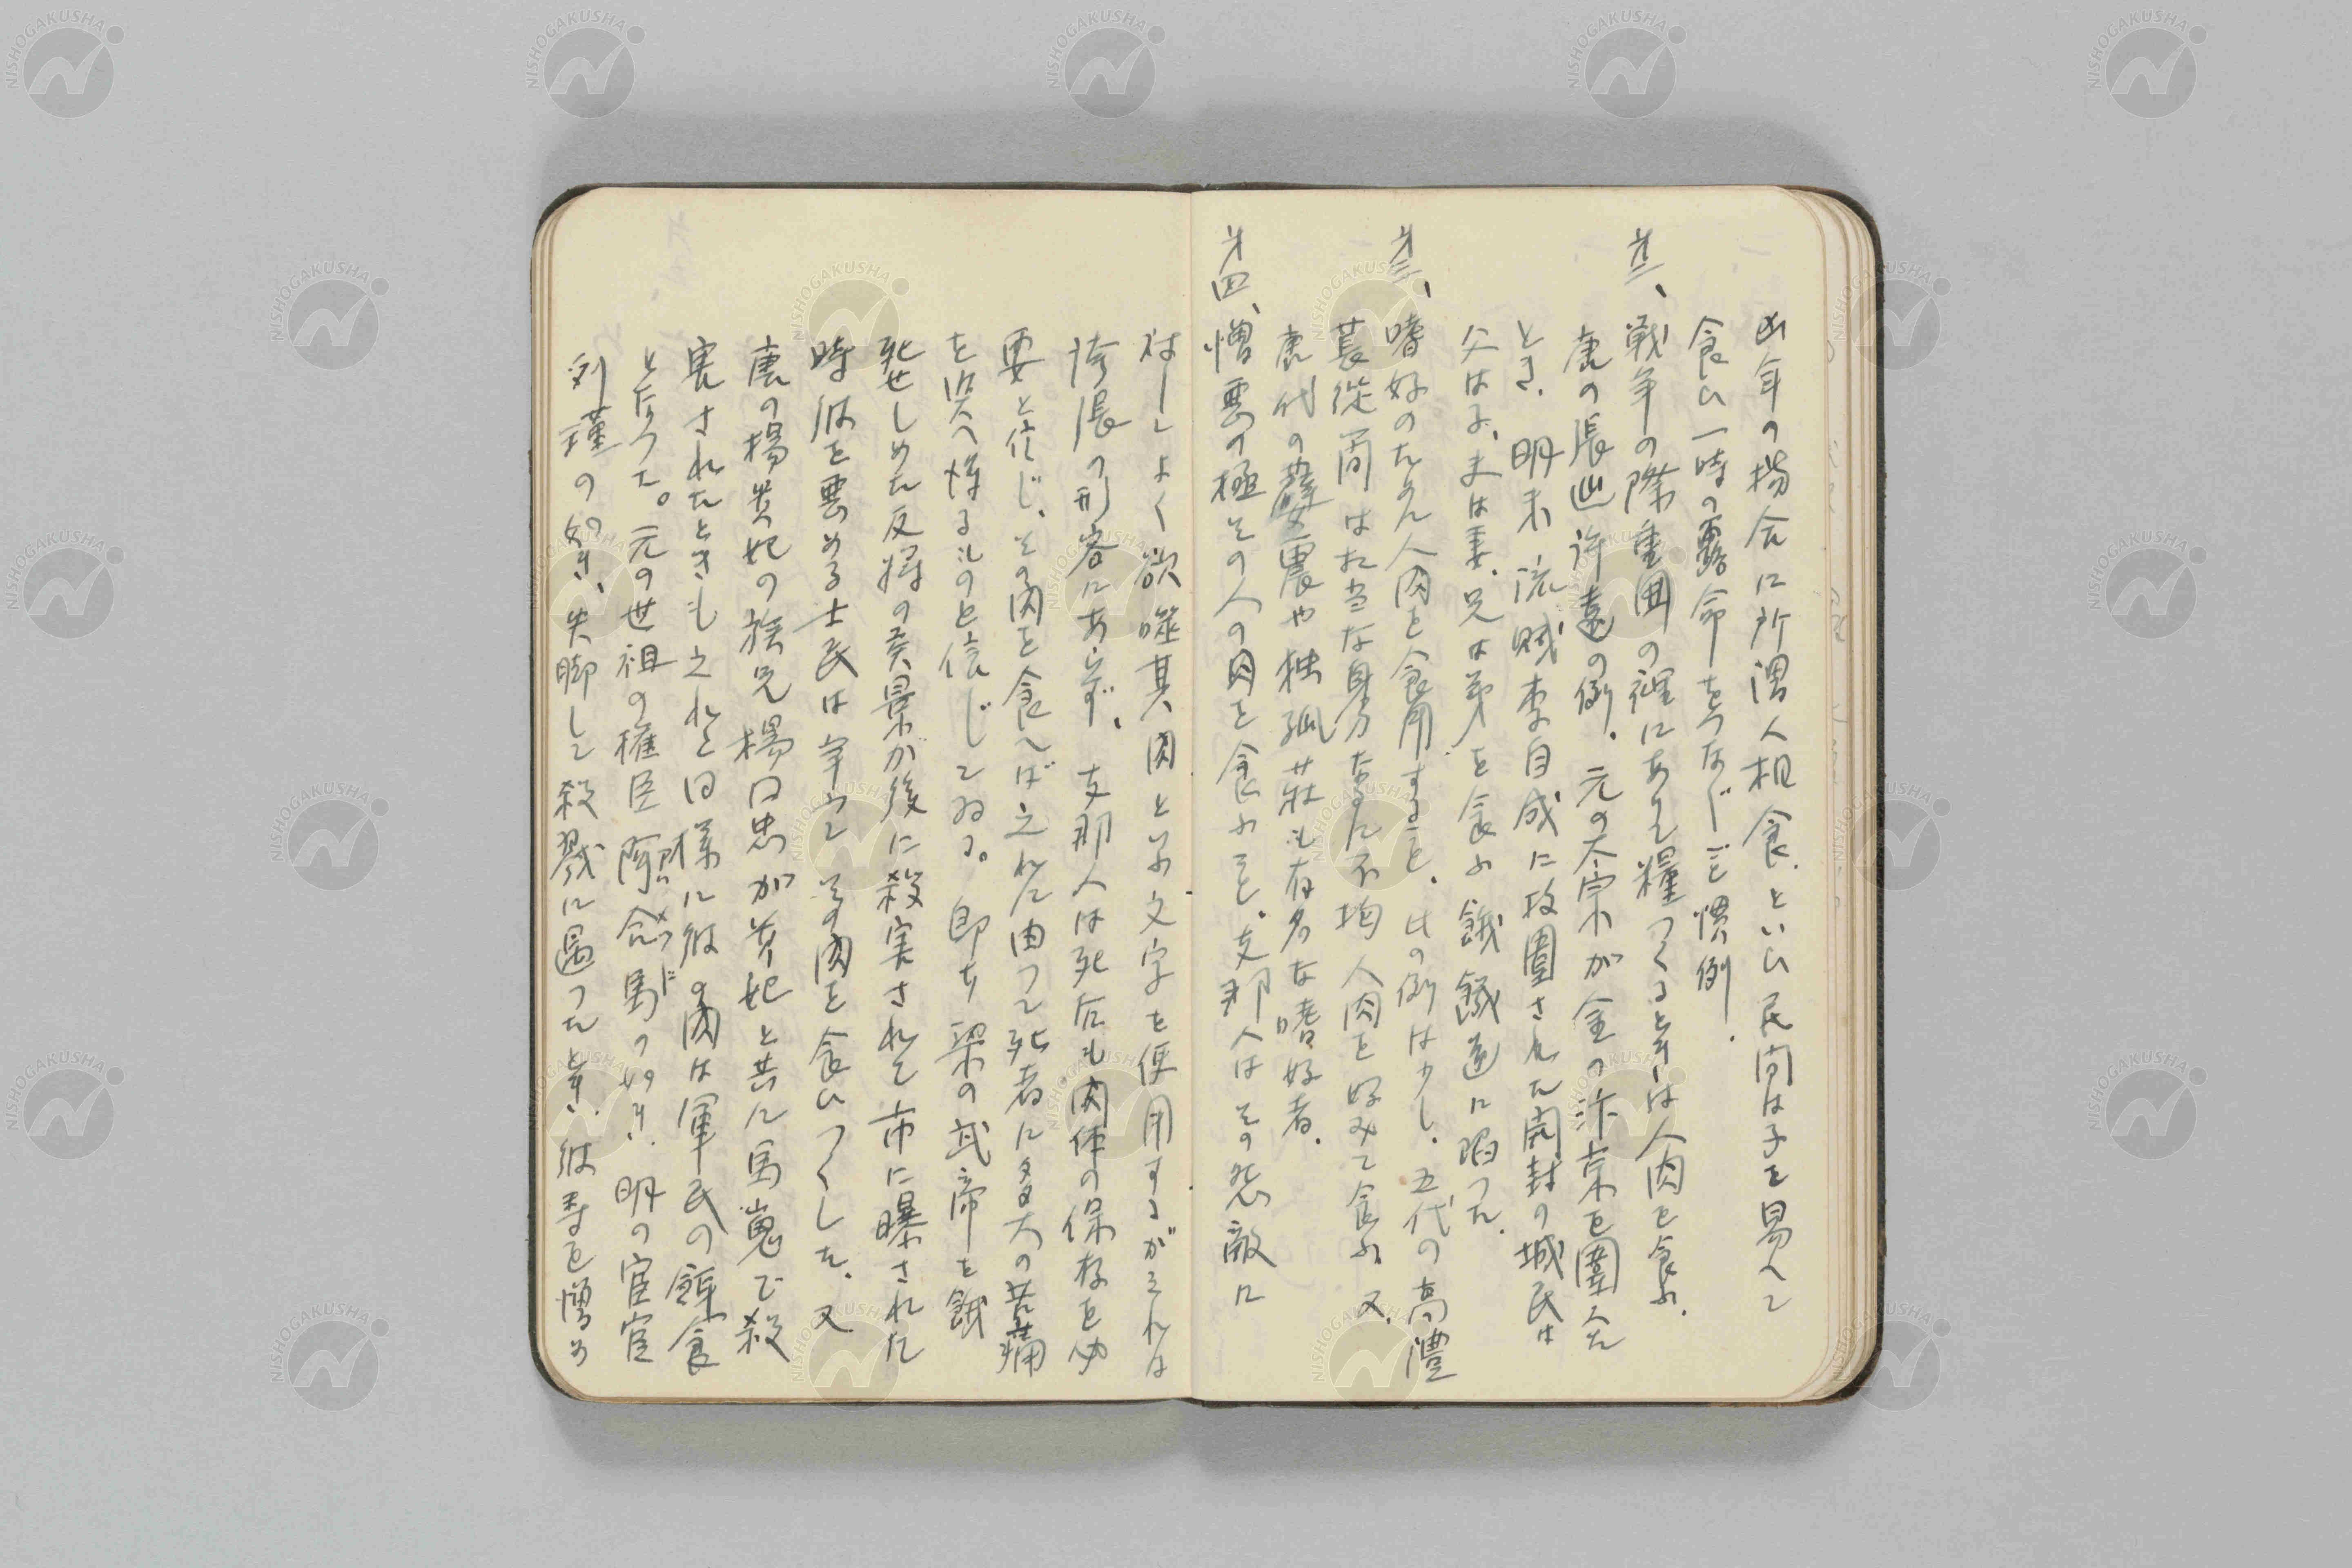 凶年の場合に所謂人相食、といひ民間は子を易へて
食ひ一時の露命をつなぐこと慣例。
第二、戦争の際重囲の裡にありて糧つくるときは人肉を食ふ。
唐の張巡許遠の例。元の太宗が金の汴京を圍んだ
とき、明末流賊李自成に攻圍された開封の城民は
父は子、夫は妻、兄は弟を食ふ餓鬼道に陥つた。
第三、嗜好のため人肉を食用すること。此の例は少し。五代の高澧
萇従簡は相当な身分なるに不拘人肉を好みて食ふ。又、
唐代の薛震や独孤荘も有名な嗜好者。
第四、憎悪の極その人の肉を食ふこと。支那人はその怨敵に
対してよく欲噬其肉といふ文字を使用するがこれは
誇張の形容にあらず、支那人は死后も肉体の保存を必
要と信じ、その肉を食へば之れに由つて死者に多大の苦痛
を與へ得るものと信じてゐる。即ち梁の武帝を餓
死せしめた反将の侯景が後に殺害されて市に曝された
時彼を悪める士民は争つてその肉を食ひつくした。又
唐の楊貴妃の族兄楊国忠が貴妃と共に馬嵬で殺
害されたときも之れと同様に彼の肉は軍民の餌食
となつた。元の世祖の権臣阿合馬の如き、明の宦官
劉瑾の如き、失脚して殺戮に遇つたとき、彼等を憎め